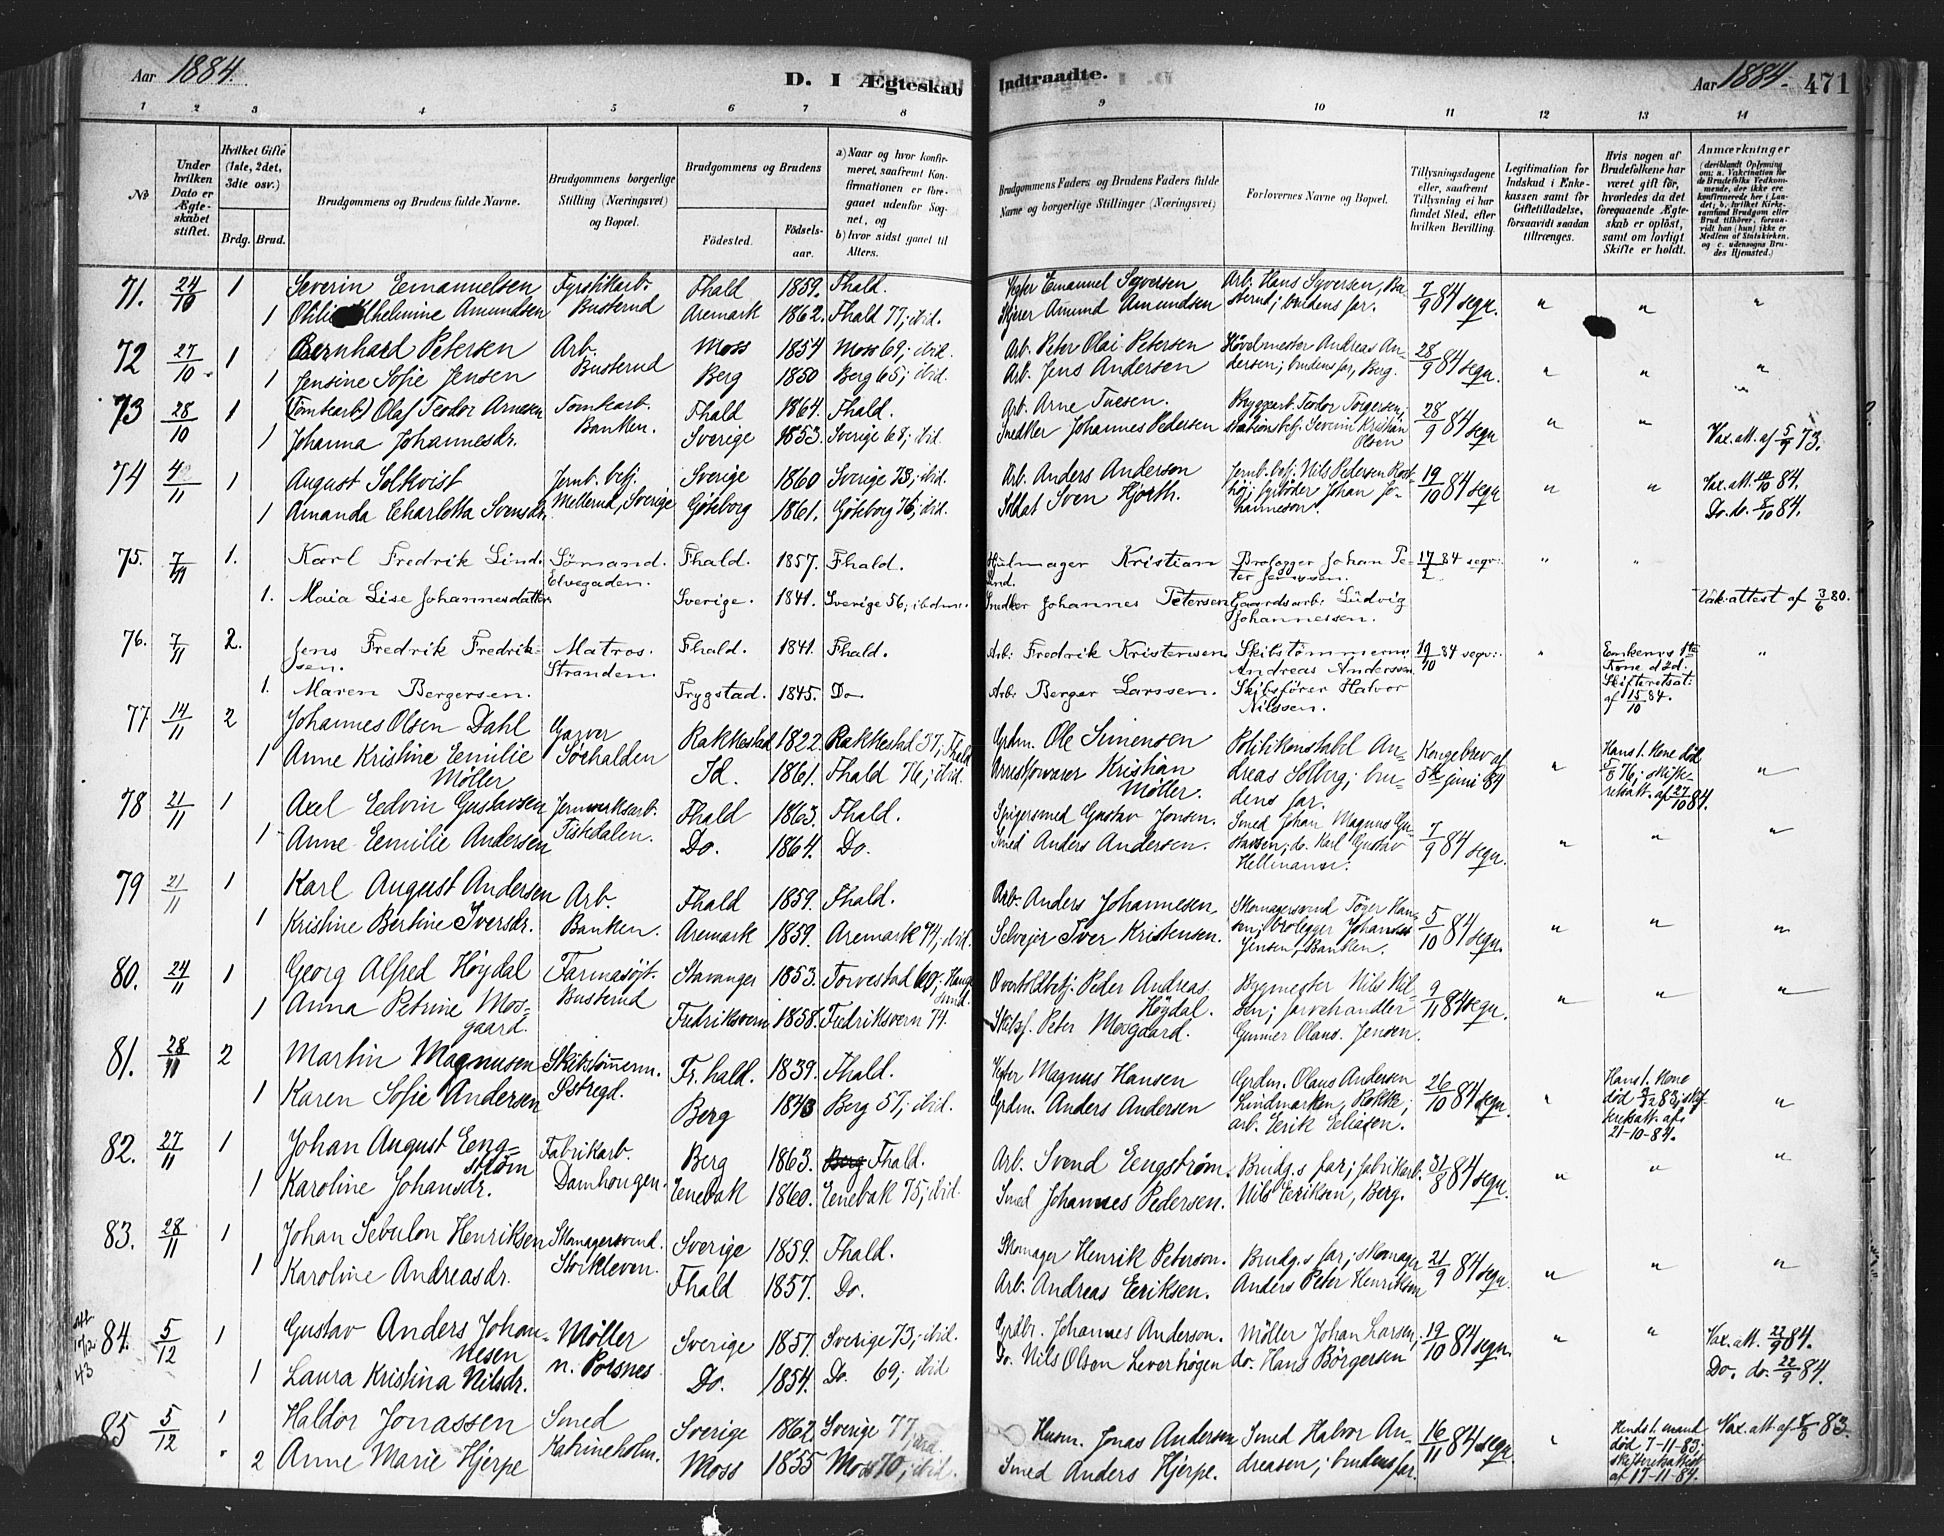 Aar 1884. D. I Ægteskab Indtraadte. Aar 1884. 471
1 2 3 4 5 6 7 8 9 10 11 12 13 14
No
Under hvilken Dato er Ægteskabet stiftet.
Hvilket Gifte (1ste, 2det, 3die osv.)
Brdg. Brud.
Brudgommens og Brudens fulde Navne.
Brudgommens borgerlige Stilling (Næringsvei) og Bopæl.
Brudgommens og Brudens
Fødested. Fødselsaar.
a) Naar og hvor konfirmeret, saafremt Konfirmationen er foregaaet udenfor Sognet, og
b) hvor sidst gaaet til Alters.
Brudgommens Faders og Brudens Faders fulde Navne og borgerlige Stillinger (Næringsvei)
Forlovernes Navne og Bopæl.
Tillysningsdagene eller, saafremt Tillysning ei har fundet Sted, efter hvilken Bevilling.
Legitimation for Indskud i Enkekassen samt for Giftetilladelse, forsaavidt saadan tiltrænges.
Hvis nogen af Brudefolkene har været gift før, hvorledes da det foregaaende Ægteskab er opløst, samt om lovligt Skifte er holdt.
Anmærkninger
(deriblandt Oplysning om: a. Vakcination for de Brudefolks Vedkommende, der ikke ere konfirmerede her i Landet; b. hvilket Kirkesamfund Brudgom eller Brud tilhører, forsaavidt han (hun) ikke er Medlem af Statskirken, og c. udensogns Brudes Hjemsted.)
71. 24/10 1 Severin Emanuelsen Fyrstikarb. Fhald 1859. Fhald. Vegter Emanuel Syversen Arb. Hans Syversen, Bu- 7/9 84 seqv. " " "
1 Othilie Vilhelmine Amundsen Busterud Aremark 1862. Fhald 77; ibid. Skjærer Amund Amundsen sterud; brudens far.
72 27/10 1 Bernhard Petersen Arb. Moss 1854 Moss 69; ibid. Arb. Peter Olai Petersen Høvdmester Andreas An- 28/9 84 seqv. " " "
1 Jensine Sofie Jensen Busterud Berg 1850 Berg 65; ibid. Arb. Jens Andersen dersen; brudens far, Berg.
73 28/10 1 (Tomtearb) Olaf Teodor Arnesen Tomtearb. Fhald 1864. Fhald. Arb. Arne Tuesen. Byggearb. Teodor Torgersen, 28/9 84 seqv " "
1 Johanna Johannesdr. Banken. Sverige 1853. Sverige 68; ibid. Snedker Johannes Pedersen stationsbetj. Severin Kristian Olsen Vax. att. af 5/9 73.
74 4/11 1 August Solkvist Jernb. betj. Sverige 1860 Sverige 73; ibid. Arb. Anders Anderson Jernb. betj. Nils Pedersen Rost- 19/10 84 seqv " " Vax. att. 12/10 84.
1 Amanda Charlotta Svensdr. Mellerud, Sverige Göteborg 1861. Göteborg 76; ibid. Soldat Sven Hjorth. høj fyrbøder Johan Jo- hanneson. Do. do. 8/10 84.
75. 7/11 1. Karl Fredrik Lind. Sømand. Fhald. 1857. Fhald. Hjulmager Kristian Lind. Brolegger Johan Pe- ter Jenssen. 17/2 84 seqv: " "
1. Maia Lise Johannesdatter Elvegaden. Sverige. 1841. Sverige 56; ibdm. Snedker Johannes Petersen Gaardsarb: Ludvig Johannessen. Vak: attest af 3/6 80.
76. 7/11 2. Jens Fredrik Fredrik- sen. Matros. Fhald. 1841. Fhald. Arb: Fredrik Kristensen Skibstömmerm: Andreas Andersen 19/10 84 seqv: " Enkem: 1ste Kone d 2d. Skifteretsat: af 15/10 84. "
1. Maren Bergersen. Stranden. Trygstad. 1845. Do Arb: Berger Larssen. Skibsfører Halvor Nilssen.
77 14/11 2 Johannes Olsen Dahl Garver Rakkestad 1822 Rakkestad 37; Fhald Grdm. Ole Simensen Politikonstabel An- Kongebrev af " Hans 1. Kone død 5/8 76; skifte- retsatt. af 27/10 84. "
1 Anne Kristine Emilie Møller Søehalden Id. 1861. Fhald 76; ibid. Arrestforvarer Kristian Møller. dreas Solberg; bru- dens far. 5te juni 84
78 21/11 1 Axel Edvin Gustavsen Jernverksarb. Fhald 1863. Fhald. Spigersmed Gustav Jonsen. Smed Johan Magnus Gu- 7/9 84 seqv. " " "
1 Anne Emilie Andersen Tistedalen. Do. 1864. Do. Smed Anders Andersen. stavsen; do. Karl Gustav Hellmann.
79 21/11 1 Karl August Andersen Arb. Fhald 1859. Fhald. Arb. Anders Johannesen. Skomagersvend Töger Han- 5/10 84 seqv. " " "
1 Kristine Bertine Iversdr. Banken. Aremark 1859. Aremark 74; ibid. Selvejer Iver Kristensen. sen; brolegger Johannes Jensen, Banken.
80. 24/11 1 Georg Alfred Høydal Farmasöjt. Stavanger 1853. Torvestad 69; Hauge- sund. Overtoldbetj. Peder Andreas Høydal. Bygmester Nils Nil- 9/11 84 seqv. " " "
1 Anna Petrine Mos- gaard. Busterud Fredriksvern 1858. Fredriksvern 74. Skibsf. Peter Mosgaard. sen; farvehandler Gunner Olaus Jensen.
81. 28/11 2 Martin Magnusen Skibstömerm. Fr.hald. 1839. Fhald. Vegter Magnus Hansen Grdm. Olaus Andersen 26/10 84 seqv. " Hans 1. Kone død 83; skif- teretsatt. af 21-10-84. "
1 Karen Sofie Andersen Östregd. Berg 1843 Berg 57; ibid. Grdm. Anders Andersen Lindmarken, Rokke; arb. Erik Eliasen.
82. 27/11 1 Johan August Eng- ström Fabrikarb. Berg 1863. Berg Fhald. Arb. Svend Engstrøm. Brudg.s far; fabrikarb. 31/8 84 seqv. " " "
1 Karoline Johansdr. Damhougen. Enebak 1860. Enebak 75; ibid. Smed Johannes Pedersen. Nils Eriksen, Berg.
83. 28/11 1 Johan Sebulon Henriksen Skomagersvend. Sverige 1859. Fhald. Skomager Henrik Peterson. Brudg.s far; skomager 21/9 84 seqv. " " "
1 Karoline Andreasdr. Storkleven. Fhald 1857. Do. Arb. Andreas Eriksen. Anders Peter Henriksen
84. 5/12 1 Gustav Anders Johan- nesen Møller Sverige 1857. Sverige 73; ibid. Grdbr. Johannes Anderson. Møller Johan Larsen; 19/10 84 seqv. " " Vax. att. 22/9 84.
1 Laura Kristina Nilsdr. n. Porsnes Do. 1854. Do. 69; ibid Do. Nils Olson Leverhögen do. Hans Börgersen Do. do. 22/9 84.
85 5/12 1 Haldor Jonassen Smed Sverige 1862 Sverige 77; ibid. Husm. Jonas Andersen Smed Halvor An- 16/11 84 seqv. " Hends 1. mand død 7-11-83; skifteretsattest af 17-11-84. Vax. att. af 83.
" 2 Anne Marie Hjerpe Katrineholm. Moss 1855 Moss 70; ibid. Smed Anders Hjerpe. dreasen; brudens far.